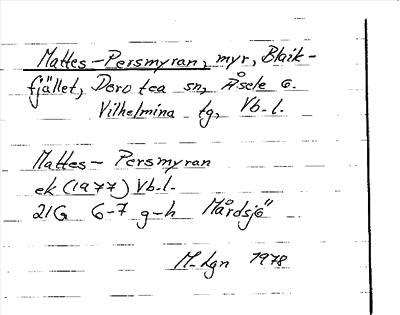 Mattes-Persmyran, myr, Blaik-
fjället, Dorotea sn, Åsele
Vilhelmina tg, Vb.l.
Mattes- Persmyran
ek (1977) Vb.l.
21G 6-7 g-h Mårdsjö
M-Lgn 1978